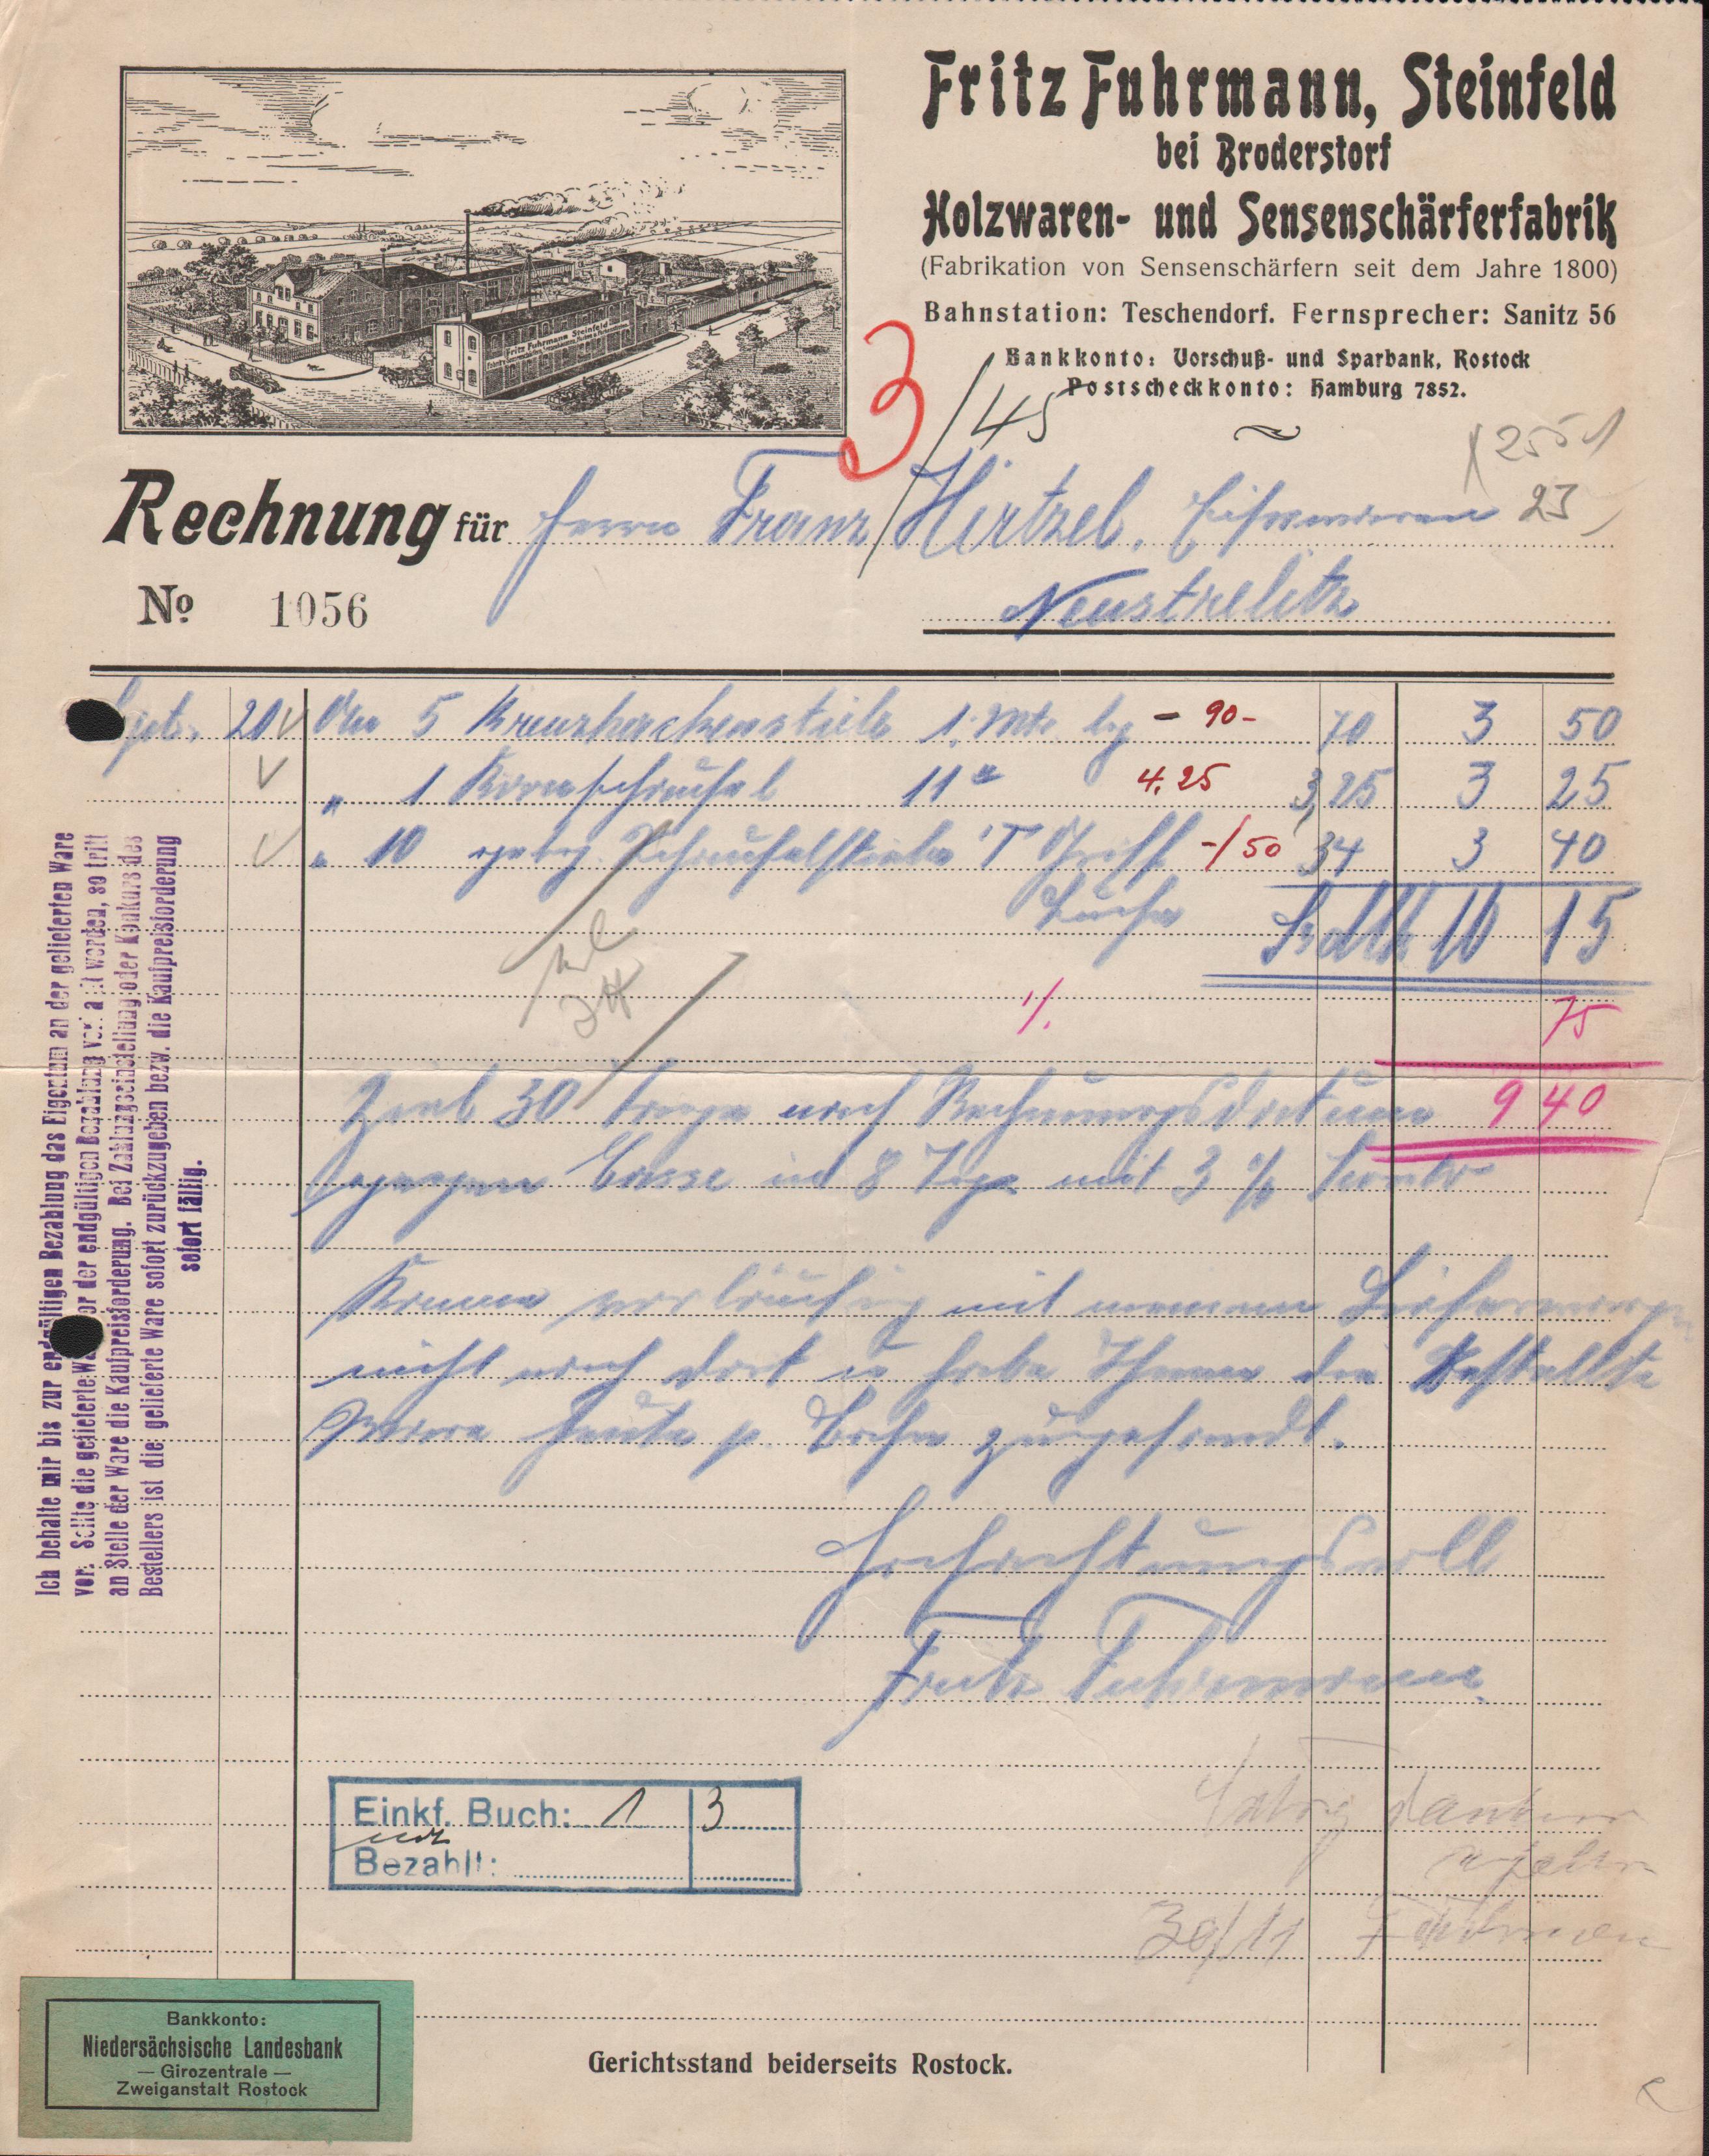 Fritz Fuhrmann, Steinfeld
bei Broderstorf
Holzwaren- und Sensenschärferfabrik
(Fabrikation von Sensenschärfern seit dem Jahre 1800)
Bahnstation: Teschendorf. Fernsprecher: Sanitz 56
Bankkonto: Vorschuß- und Sparbank, Rostock
Postscheckkonto: Hamburg 7852.
Fritz Fuhrmann Steinfeld
3/45
2551
Rechnung für Herrn Franz Hirtzel, Eisenwaren 23
No 1056
Neustrelitz
Sept. 20 An 5 Kreuzhackenstiele 1. Mtr. lg - 90 - 70 3 50
" 1 Kornschaufel 11" 4.25 3,25 3 25
" 10 gebog. Schaufelstiele T Griff -/50 34 3 40
Buche 10 15
1/. 75
9 40
Ziel 30 Tage nach Rechnungsdatum
gegen Casse in 8 Tage mit 3 % Sconto
Komme vorläufig mit meinem Lieferwagen
nicht nach dort u habe Ihnen die Bestellte
Ware heute p. Bahn zugesandt.
Hochachtungsvoll
Fritz Fuhrmann
Ich behalte mir bis zur endgültigen Bezahlung das Eigentum an der gelieferten Ware
vor. Sollte die gelieferte Ware vor der endgültigen Bezahlung veräußert werden, so tritt
an Stelle der Ware die Kaufpreisforderung. Bei Zahlungseinstellung oder Konkurs des
Bestellers ist die gelieferte Ware sofort zurückzugeben bezw. die Kaufpreisforderung
sofort fällig.
Einkf. Buch: 1 3
Bezahlt:
30/11
Bankkonto:
Niedersächsische Landesbank
— Girozentrale —
Zweiganstalt Rostock
Gerichtsstand beiderseits Rostock.